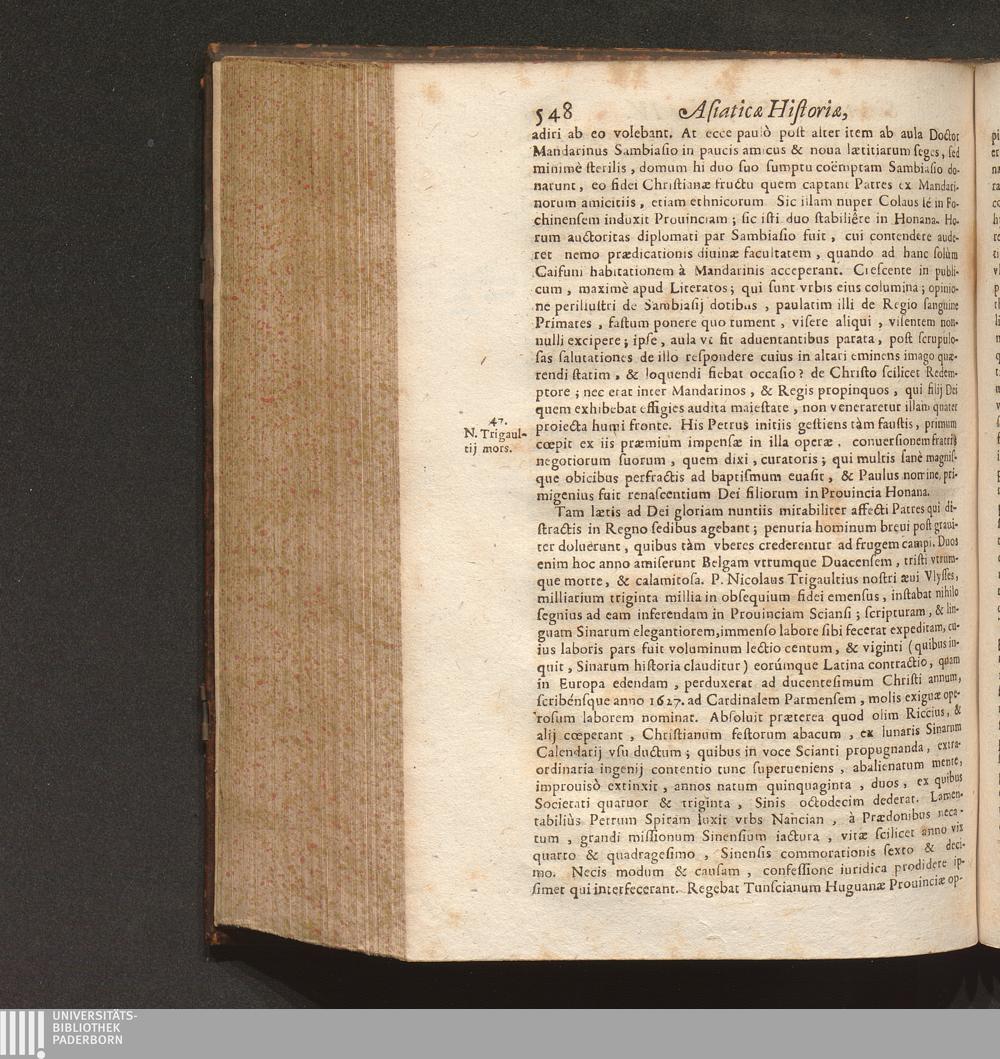 548 Aſiaticæ Hiſtoriæ,
adiri ab eo volebant. At ecce paulò poſt alter item ab aula Doctor
Mandarinus Sambiaſio in paucis amicus & noua lætitiarum ſeges, ſed
minimè ſterilis, domum hi duo ſuo ſumptu coëmptam Sambiaſio do-
narunt, eo fidei Chriſtianæ fructu quem captant Patres ex Mandari-
norum amicitiis, etiam ethnicorum Sic illam nuper Colaus lé in Fo-
chinenſem induxit Prouinciam; ſic iſti duo ſtabiliêre in Honana. Ho-
rum auctoritas diplomati par Sambiaſio fuit, cui contendere aude-
ret nemo prædicationis diuinæ facultatem, quando ad hanc ſolùm
Caifuni habitationem à Mandarinis acceperant. Creſcente in publi-
cum, maximè apud Literatos; qui ſunt vrbis eius columina; opinio-
ne perilluſtri de Sambiaſij dotibus, paulatim illi de Regio ſanguine
Primates, faſtum ponere quo tument, viſere aliqui, viſentem non-
nulli excipere; ipſe, aula vt fit aduentantibus parata, poſt ſcrupulo-
ſas ſalutationes de illo reſpondere cuius in altari eminens imago quæ-
rendi ſtatim, & loquendi fiebat occaſio? de Chriſto ſcilicet Redem-
ptore; nec erat inter Mandarinos, & Regis propinquos, qui filij Dei
quem exhibebat effigies audita maieſtate, non veneraretur illam quater
proiecta humi fronte. His Petrus initiis geſtiens tàm fauſtis, primum
cœpit ex iis præmium impenſæ in illa operæ, conuerſionem fratris
negotiorum ſuorum, quem dixi, curatoris; qui multis ſanè magniſ-
que obicibus perfractis ad baptiſmum euaſit, & Paulus nomine, pri-
migenius fuit renaſcentium Dei filiorum in Prouincia Honana.
47.
N. Trigaul-
tij mors.
Tam lætis ad Dei gloriam nuntiis mirabiliter affecti Patres qui di-
ſtractis in Regno ſedibus agebant; penuria hominum breui poſt graui-
ter doluerunt, quibus tàm vberes crederentur ad frugem campi. Duos
enim hoc anno amiſerunt Belgam vtrumque Duacenſem, triſti vtrum-
que morte, & calamitoſa. P. Nicolaus Trigaultius noſtri æui Vlyſſes,
milliarium triginta millia in obſequium fidei emenſus, inſtabat nihilo
ſegnius ad eam inferendam in Prouinciam Scianſi; ſcripturam, & lin-
guam Sinarum elegantiorem, immenſo labore ſibi fecerat expeditam, cu-
ius laboris pars fuit voluminum lectio centum, & viginti (quibus in-
quit, Sinarum hiſtoria clauditur) eorúmque Latina contractio, quam
in Europa edendam, perduxerat ad ducenteſimum Chriſti annum,
ſcribénſque anno 1627. ad Cardinalem Parmenſem, molis exiguæ ope-
roſum laborem nominat. Abſoluit præterea quod olim Riccius, &
alij cœperant, Chriſtianum feſtorum abacum, ex lunaris Sinarum
Calendarij vſu ductum; quibus in voce Scianti propugnanda, extra-
ordinaria ingenij contentio tunc ſuperueniens, abalienatum mente,
improuisò extinxit, annos natum quinquaginta, duos, ex quibus
Societati quatuor & triginta, Sinis octodecim dederat. Lamen-
tabiliùs Petrum Spiram luxit vrbs Nancian, à Prædonibus neca-
tum, grandi miſſionum Sinenſium iactura, vitæ ſcilicet anno vix
quarto & quadrageſimo, Sinenſis commorationis ſexto & deci-
mo. Necis modum & cauſam, confeſſione iuridica prodidere ip-
ſimet qui interfecerant. Regebat Tunſcianum Huguanæ Prouinciæ op-
UNIVERSITÄTS-
BIBLIOTHEK
PADERBORN